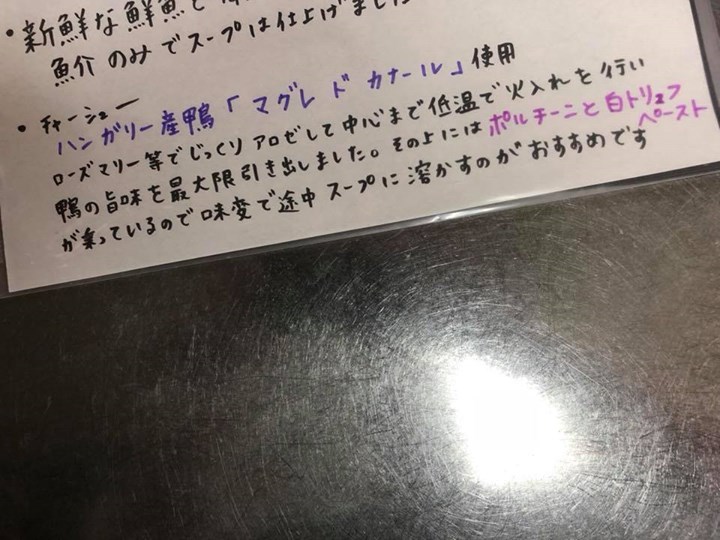 ・新鮮な鮮魚と
魚介のみでスープは仕上げました
・チャーシュー
ハンガリー産鴨「マグレ ド カナール」使用
ローズマリー等でじっくりアロゼして中心まで低温で火入れを行い
鴨の旨味を最大限引き出しました。その上にはポルチーニと白トリュフペースト
が乗っているので味変で途中スープに溶かすのがおすすめです